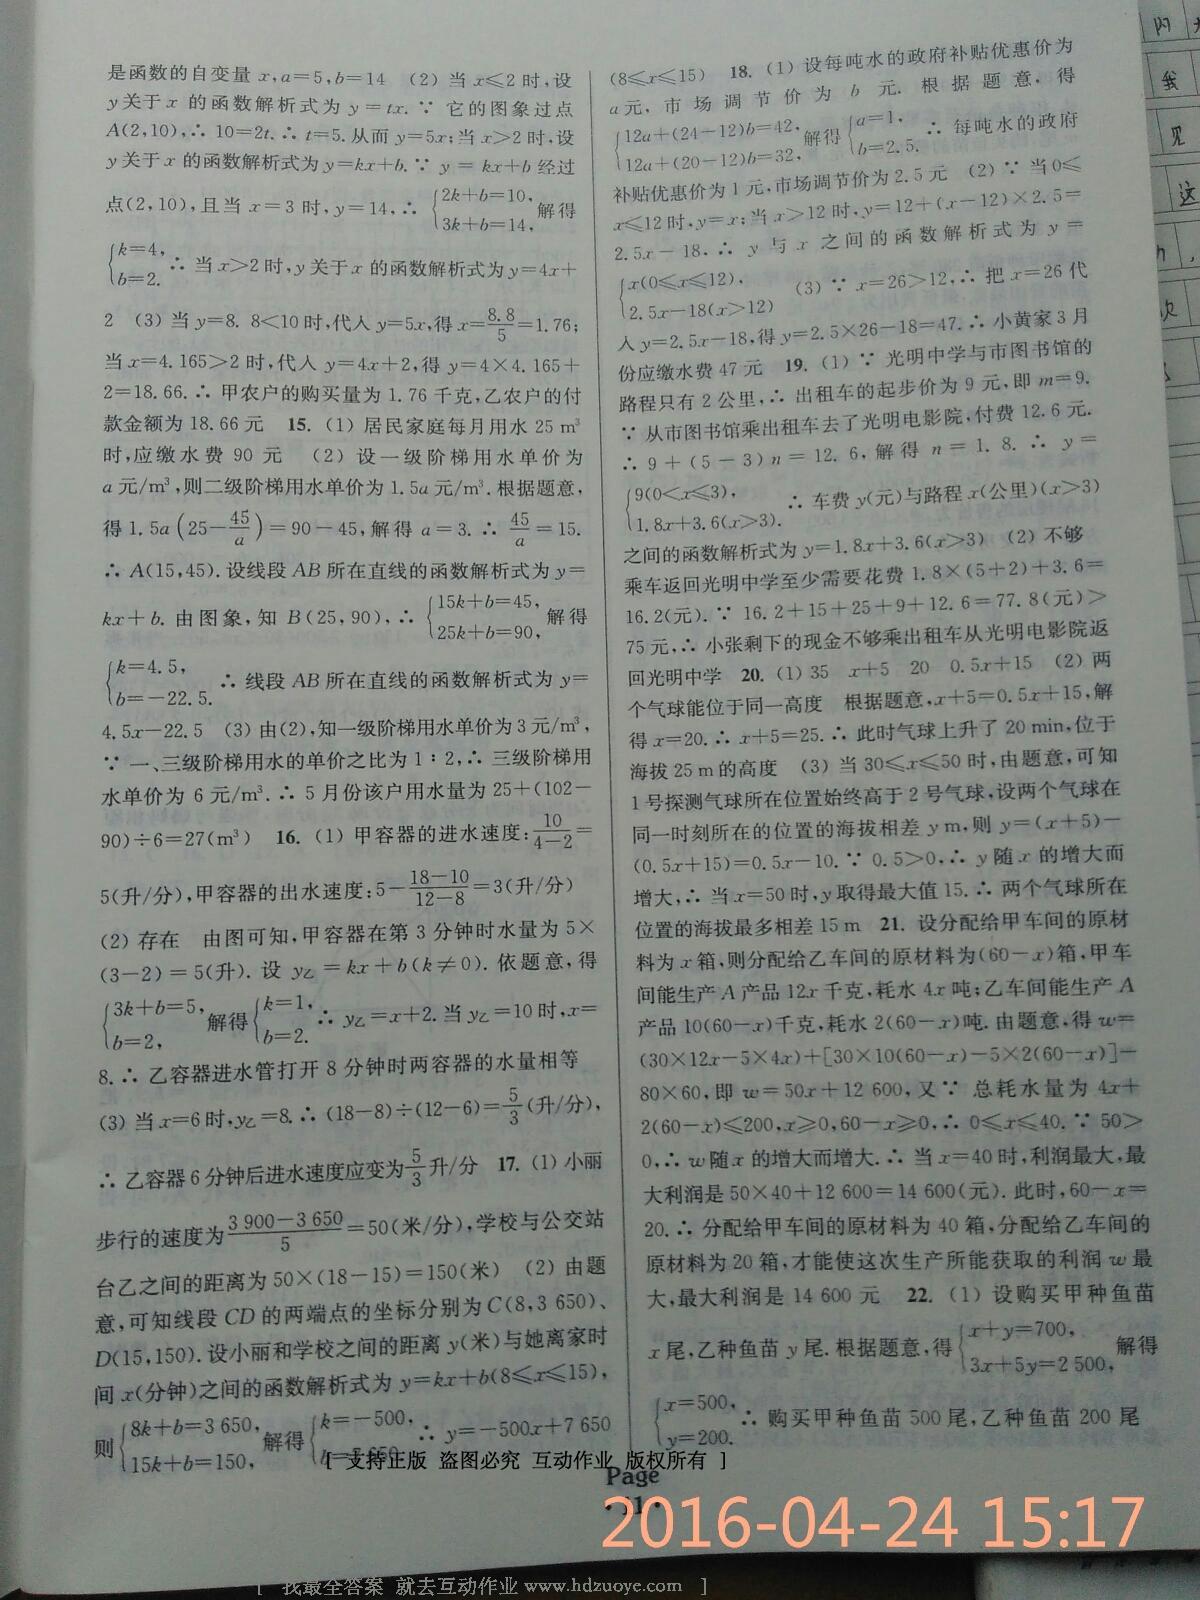 是函数的自变量 x,a=5,b=14 (2) 当 x≤2 时,设
y关于 x 的函数解析式为 y=tx. ∵ 它的图象过点
A(2,10),∴ 10=2t.∴ t=5.从而 y=5x;当 x>2 时,设
y关于 x 的函数解析式为 y=kx+b.∵ y = kx+b 经过
点(2,10),且当 x=3 时,y=14,∴ {2k+b=10, 3k+b=14, 解得
{k=4, b=2. ∴ 当 x>2 时,y 关于 x 的函数解析式为 y=4x+
2 (3) 当 y=8.8<10 时,代入 y=5x,得 x=8.8/5=1.76;
当 x=4.165>2 时,代入 y=4x+2,得 y=4×4.165+
2=18.66.∴ 甲农户的购买量为 1.76 千克,乙农户的付
款金额为 18.66 元 15. (1) 居民家庭每月用水 25 m³
时,应缴水费 90 元 (2) 设一级阶梯用水单价为
a 元/m³,则二级阶梯用水单价为 1.5a 元/m³.根据题意,
得 1.5a(25-45/a)=90-45,解得 a=3.∴ 45/a=15.
∴ A(15,45).设线段 AB 所在直线的函数解析式为 y=
kx+b.由图象,知 B(25,90),∴ {15k+b=45, 25k+b=90, 解得
{k=4.5, b=-22.5. ∴ 线段 AB 所在直线的函数解析式为 y=
4.5x-22.5 (3) 由(2),知一级阶梯用水单价为 3 元/m³,
∵ 一、三级阶梯用水的单价之比为 1∶2,∴ 三级阶梯用
水单价为 6 元/m³.∴ 5 月份该户用水量为 25+(102-
90)÷6=27(m³) 16. (1) 甲容器的进水速度:10/4-2=
5(升/分),甲容器的出水速度:5-18-10/12-8=3(升/分)
(2) 存在 由图可知,甲容器在第 3 分钟时水量为 5×
(3-2)=5(升).设 y乙=kx+b(k≠0).依题意,得
{3k+b=5, b=2, 解得{k=1, b=2. ∴ y乙=x+2.当 y乙=10 时,x=
8.∴ 乙容器进水管打开 8 分钟时两容器的水量相等
(3) 当 x=6 时,y乙=8.∴ (18-8)÷(12-6)=5/3(升/分),
∴ 乙容器 6 分钟后进水速度应变为5/3升/分 17. (1) 小丽
步行的速度为3 900-3 650/5=50(米/分),学校与公交站
台乙之间的距离为 50×(18-15)=150(米) (2) 由题
意,可知线段 CD 的两端点的坐标分别为 C(8,3 650)、
D(15,150).设小丽和学校之间的距离 y(米)与她离家时
间 x(分钟)之间的函数解析式为 y=kx+b(8≤x≤15),
则{8k+b=3 650, 15k+b=150, 解得{k=-500, b=7 650. ∴ y=-500x+7 650
(8≤x≤15) 18. (1) 设每吨水的政府补贴优惠价为
a 元,市场调节价为 b 元.根据题意,得
{12a+(24-12)b=42, 12a+(20-12)b=32, 解得{a=1, b=2.5. ∴ 每吨水的政府
补贴优惠价为 1 元,市场调节价为 2.5 元 (2) ∵ 当 0≤
x≤12 时,y=x;当 x>12 时,y=12+(x-12)×2.5=
2.5x-18.∴ y 与 x 之间的函数解析式为 y=
{x(0≤x≤12), 2.5x-18(x>12) (3) ∵ x=26>12,∴ 把 x=26 代
入 y=2.5x-18,得 y=2.5×26-18=47.∴ 小黄家 3 月
份应缴水费 47 元 19. (1) ∵ 光明中学与市图书馆的
路程只有 2 公里,∴ 出租车的起步价为 9 元,即 m=9.
∵ 从市图书馆乘出租车去了光明电影院,付费 12.6 元.
∴ 9+(5-3)n=12.6,解得 n=1.8.∴ y=
{9(0<x≤3), 1.8x+3.6(x>3). ∴ 车费 y(元)与路程 x(公里)(x>3)
之间的函数解析式为 y=1.8x+3.6(x>3) (2) 不够
乘车返回光明中学至少需要花费 1.8×(5+2)+3.6=
16.2(元).∵ 16.2+15+25+9+12.6=77.8(元)>
75 元,∴ 小张剩下的现金不够乘出租车从光明电影院返
回光明中学 20. (1) 35 x+5 20 0.5x+15 (2) 两
个气球能位于同一高度 根据题意,x+5=0.5x+15,解
得 x=20.∴ x+5=25.∴ 此时气球上升了 20 min,位于
海拔 25 m 的高度 (3) 当 30≤x≤50 时,由题意,可知
1 号探测气球所在位置始终高于 2 号气球,设两个气球在
同一时刻所在的位置的海拔相差 y m,则 y=(x+5)-
(0.5x+15)=0.5x-10.∵ 0.5>0,∴ y 随 x 的增大而
增大,∴ 当 x=50 时,y 取得最大值 15.∴ 两个气球所在
位置的海拔最多相差 15 m 21. 设分配给甲车间的原材
料为 x 箱,则分配给乙车间的原材料为(60-x)箱,甲车
间能生产 A 产品 12x 千克,耗水 4x 吨;乙车间能生产 A
产品 10(60-x)千克,耗水 2(60-x)吨.由题意,得 w=
(30×12x-5×4x)+[30×10(60-x)-5×2(60-x)]-
80×60,即 w=50x+12 600,又∵ 总耗水量为 4x+
2(60-x)≤200,x≥0,60-x≥0,∴ 0≤x≤40.∵ 50>
0,∴ w 随 x 的增大而增大.∴ 当 x=40 时,利润最大,最
大利润是 50×40+12 600=14 600(元).此时,60-x=
20.∴ 分配给甲车间的原材料为 40 箱,分配给乙车间的
原材料为 20 箱,才能使这次生产所能获取的利润 w 最
大,最大利润是 14 600 元 22. (1) 设购买甲种鱼苗
x 尾,乙种鱼苗 y 尾.根据题意,得{x+y=700, 3x+5y=2 500, 解得
{x=500, y=200. ∴ 购买甲种鱼苗 500 尾,乙种鱼苗 200 尾
[ 支持正版 盗图必究 互动作业 版权所有 ]
Page
·11·
2016-04-24 15:17
[ 找最全答案 就去互动作业 www.hdzuoye.com ]
我
见
这